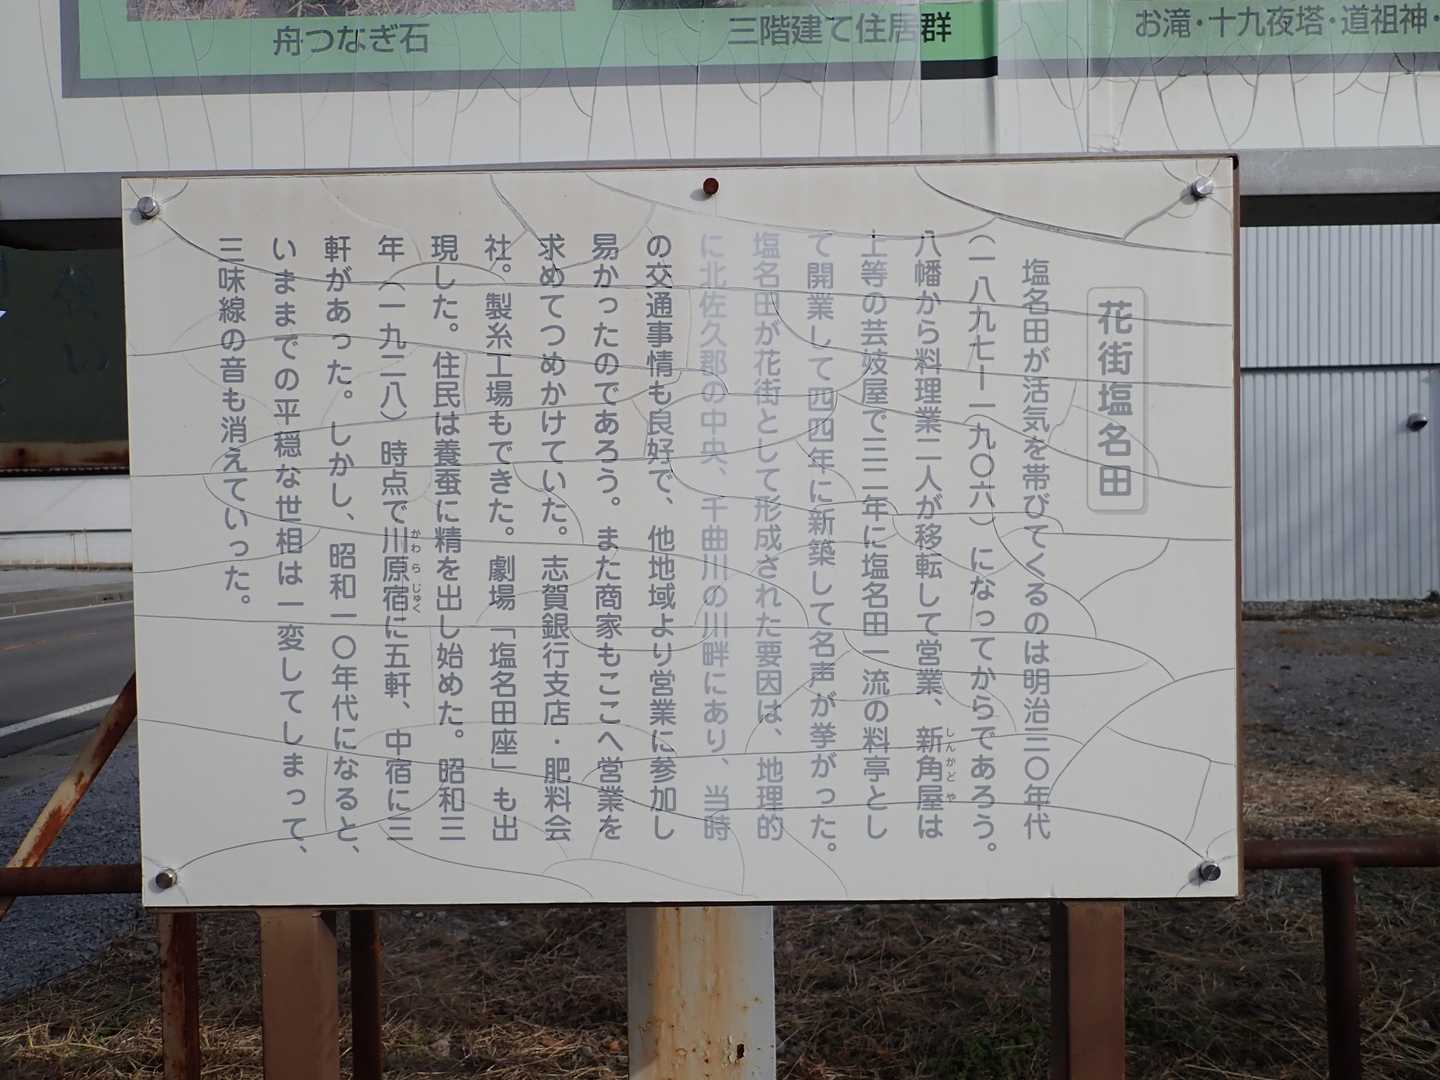 舟つなぎ石
三階建て住居群
お滝・十九夜塔・道祖神・
花街塩名田
塩名田が活気を帯びてくるのは明治三〇年代
(一八九七ー一九〇六)になってからであろう。
八幡から料理業二人が移転して営業、新角屋は
しんかどや
上等の芸妓屋で三二年に塩名田一流の料亭とし
て開業して四四年に新築して名声が挙がった。
塩名田が花街として形成された要因は、地理的
に北佐久郡の中央、千曲川の川畔にあり、当時
の交通事情も良好で、他地域より営業に参加し
易かったのであろう。また商家もここへ営業を
求めてつめかけていた。志賀銀行支店・肥料会
社。製糸工場もできた。劇場「塩名田座」も出
現した。住民は養蚕に精を出し始めた。昭和三
年(一九二八)時点で川原宿に五軒、中宿に三
かわらじゅく
軒があった。しかし、昭和一〇年代になると、
いままでの平穏な世相は一変してしまって、
三味線の音も消えていった。